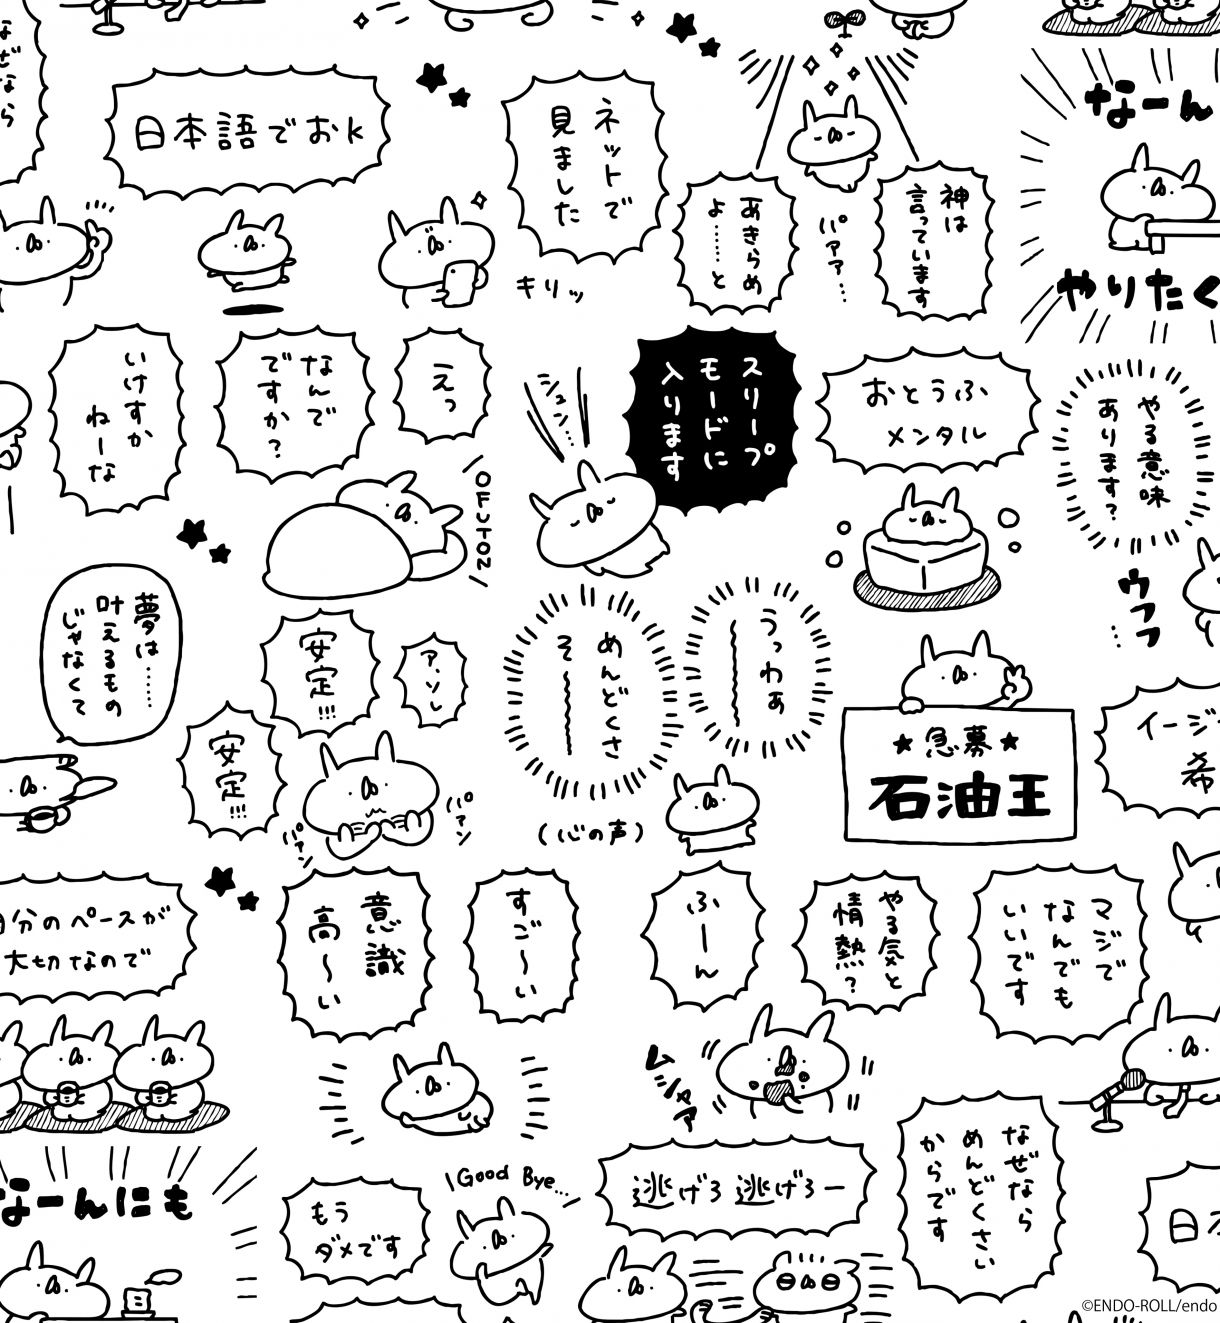 なぜなら
日本語でおk
ネットで
見ました
神は
言っています
あきらめ
よ……と
パァァァ…
なーん
やりたく
キリッ
いけすか
ねーな
なんで
ですか?
えっ
シュン…
スリープ
モードに
入ります
おとうふ
メンタル
やる意味
あります?
\OFUTON/
夢は……
叶えるもの
じゃなくて
安定!!!
ア、ソレ
安定!!!
パァン
パァン
めんどくさ
そ〜〜〜
うっわぁ
〜〜〜
(心の声)
ウフフ…
★急募★
石油王
イージ
希
分のペースが
大切なので
意識
高〜い
すご〜い
ふーん
やる気と
情熱?
マジで
なんでも
いいです
ムシャァァ
なーんにも
もう
ダメです
\Good Bye…/
逃げろ逃げろー
なぜなら
めんどくさい
からです
日
©ENDO-ROLL/endo